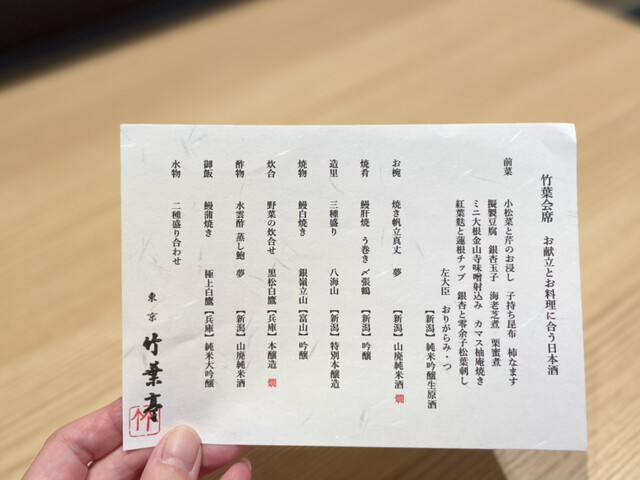 竹葉会席　お献立とお料理に合う日本酒
前菜　小松菜と芹のお浸し　子持ち昆布　柿なます
擬製豆腐　銀杏玉子　海老芝煮　栗蜜煮
ミニ大根金山寺味噌射込み　カマス柚庵焼き
紅葉麩と蓮根チップ　銀杏と零余子松葉刺し
左大臣　おりがらみ・つ
【新潟】純米吟醸生原酒
お椀　焼き帆立真丈　夢　【新潟】山廃純米酒　燗
焼肴　鰻肝焼　う巻き　〆張鶴　【新潟】吟醸
造里　三種盛り　八海山　【新潟】特別本醸造
焼物　鰻白焼き　銀嶺立山　【富山】吟醸
炊合　野菜の炊合せ　黒松白鷹【兵庫】本醸造　燗
酢物　水雲酢　蒸し鮑　夢　【新潟】山廃純米酒
御飯　鰻蒲焼き　極上白鷹【兵庫】純米大吟醸
水物　二種盛り合わせ
東京　竹葉亭
竹